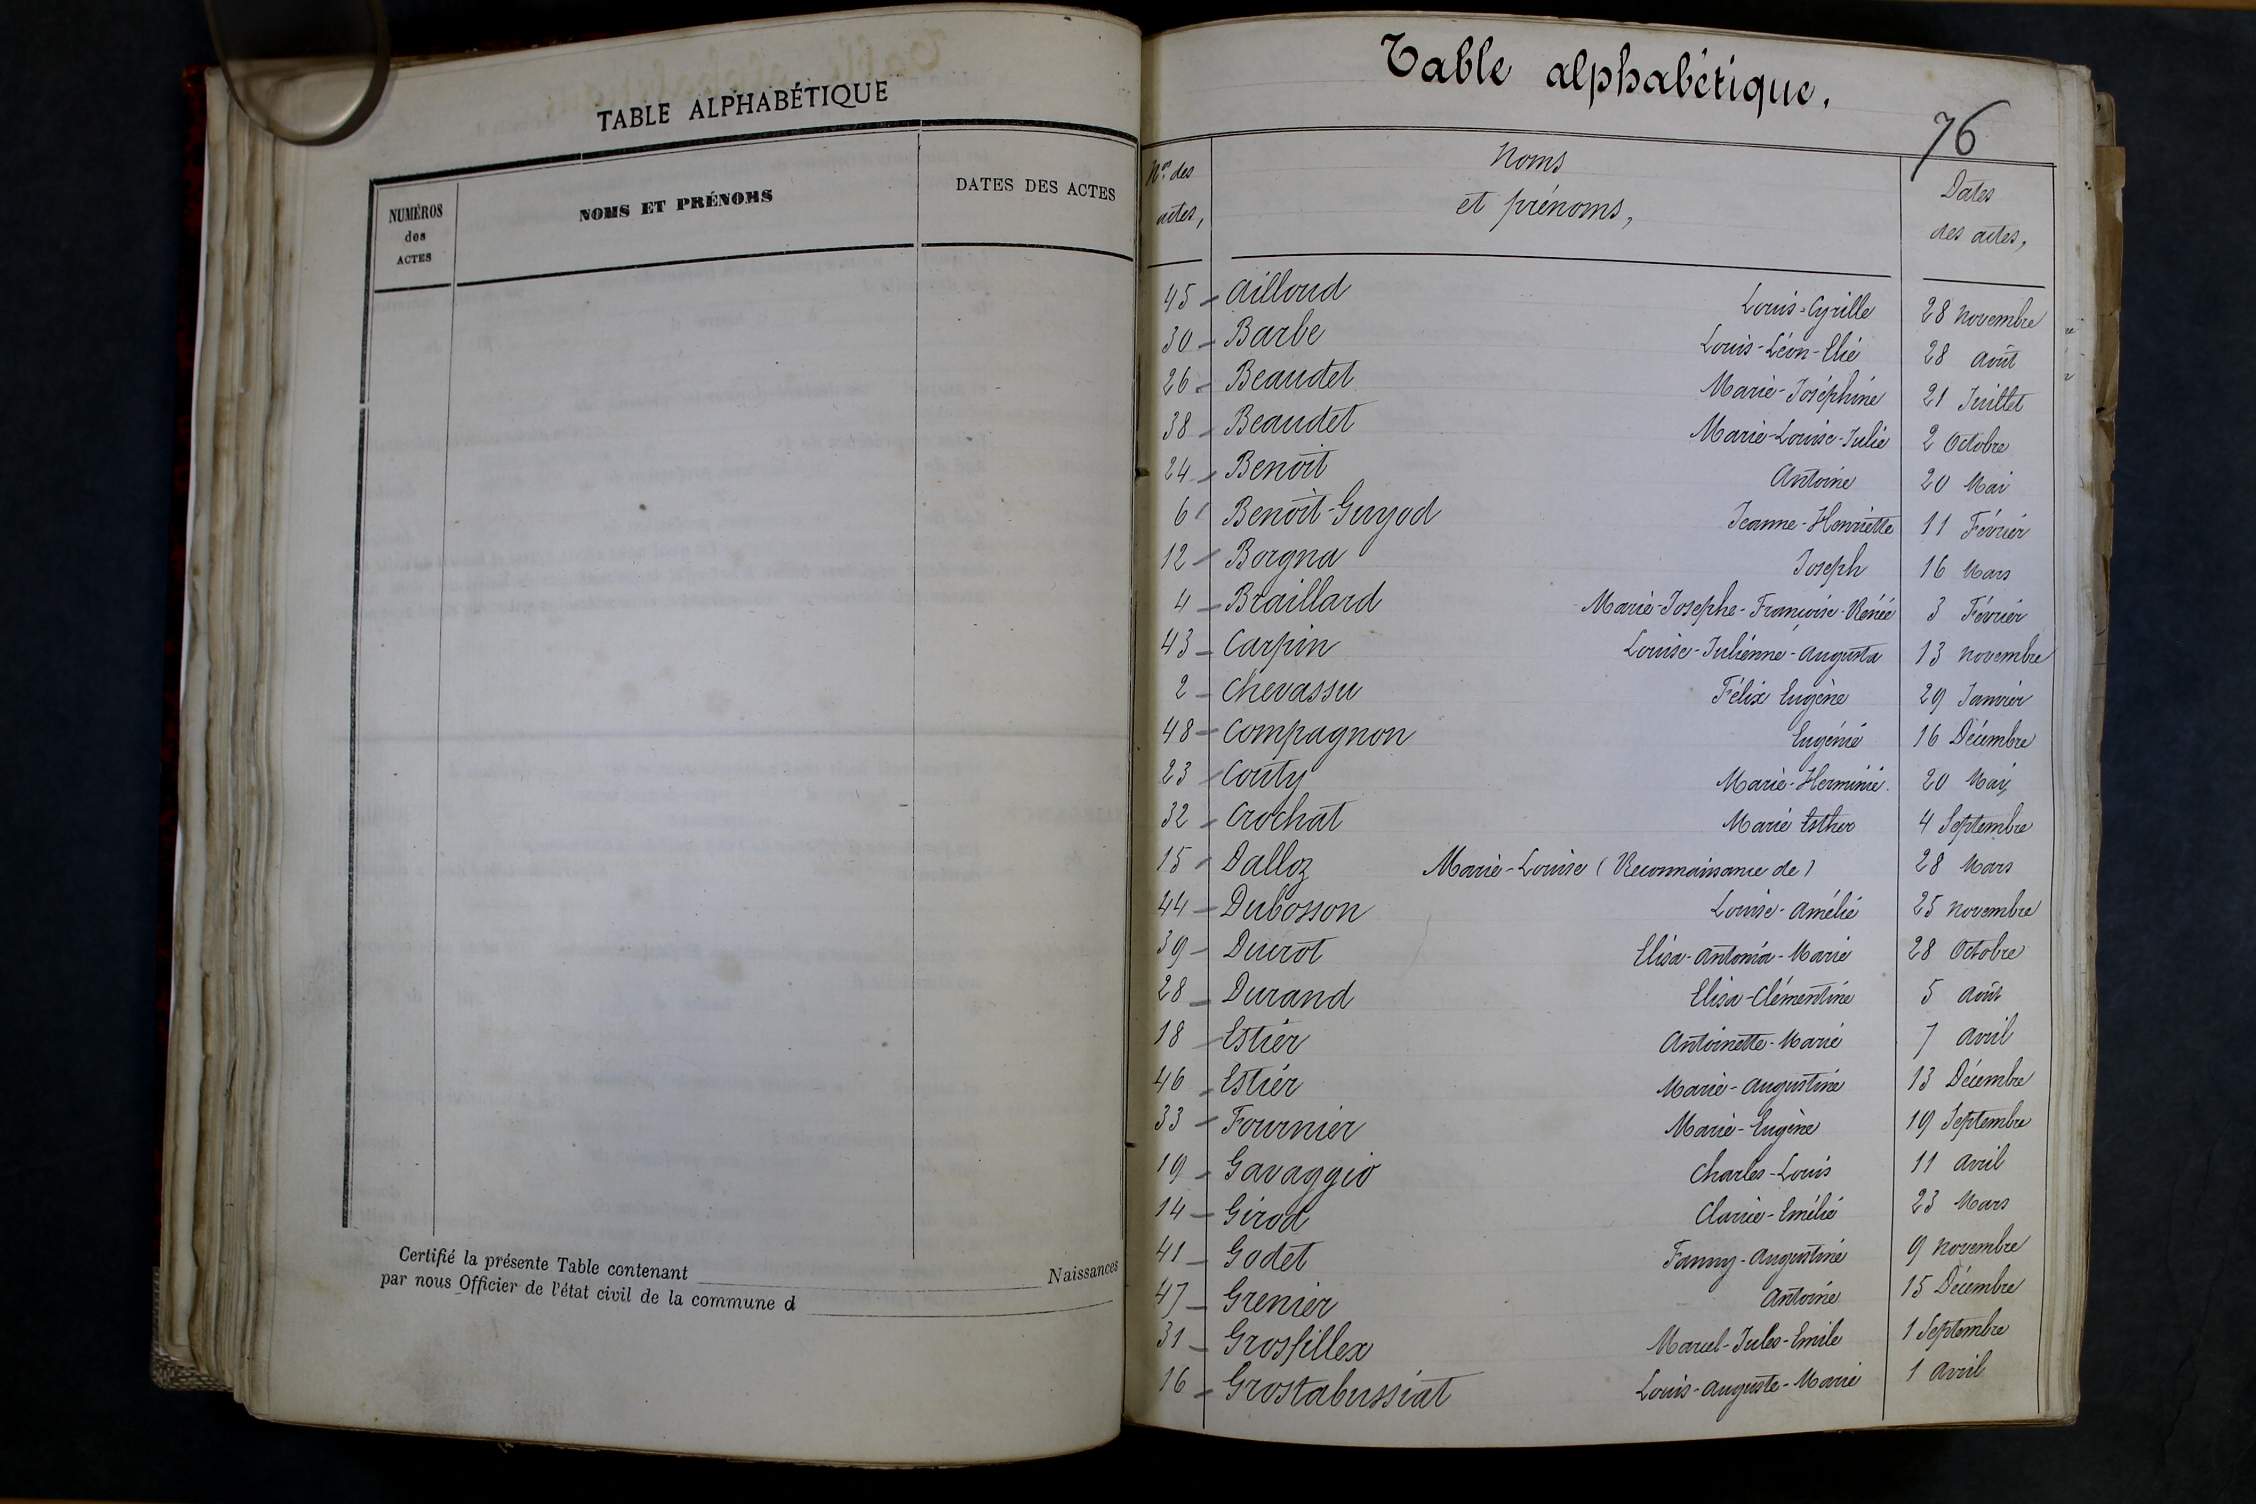 TABLE ALPHABÉTIQUE
NUMÉROS des ACTES NOMS ET PRÉNOMS DATES DES ACTES
Certifié la présente Table contenant Naissances
par nous Officier de l'état civil de la commune d
Table alphabétique.
76
Nos des actes, Noms et prénoms, Dates des actes,
45 - Ailloud Louis-Cyrille 28 Novembre
30 - Barbe Louis-Léon-Elie 28 Août
26 - Beaudet Marie-Joséphine 21 Juillet
38 - Beaudet Marie-Louise-Julie 2 Octobre
24 - Benoit Antoine 20 Mai
6 - Benoît-Guyod Jeanne-Henriette 11 Février
12 - Borgna Joseph 16 Mars
4 - Braillard Marie-Josephe-Françoise-Rénée 3 Février
43 - Carpin Louise-Julienne-Augusta 13 Novembre
2 - Chevassu Félix Eugène 29 Janvier
48 - Compagnon Eugénie 16 Décembre
23 - Couty Marie-Herminie. 20 Mai
32 - Crochat Marie Esther 4 Septembre
15 - Dalloz Marie-Louise (Reconnaissance de) 28 Mars
44 - Dubosson Louise-Amélie 25 Novembre
39 - Ducrot Elisa-Antonia-Marie 28 Octobre
28 - Durand Elisa-Clémentine 5 Août
18 - Estier Antoinette-Marie 7 Avril
46 - Estier Marie-Augustine 13 Décembre
33 - Fournier Marie-Eugène 19 Septembre
19 - Gavaggio Charles-Louis 11 Avril
14 - Girod Clarie-Emélie 23 Mars
41 - Godet Fanny-Augustine 9 Novembre
47 - Grenier Antoine 15 Décembre
31 - Grosfillex Marcel-Jules-Emile 1 Septembre
16 - Grostabussiat Louis-Auguste-Marie 1 Avril